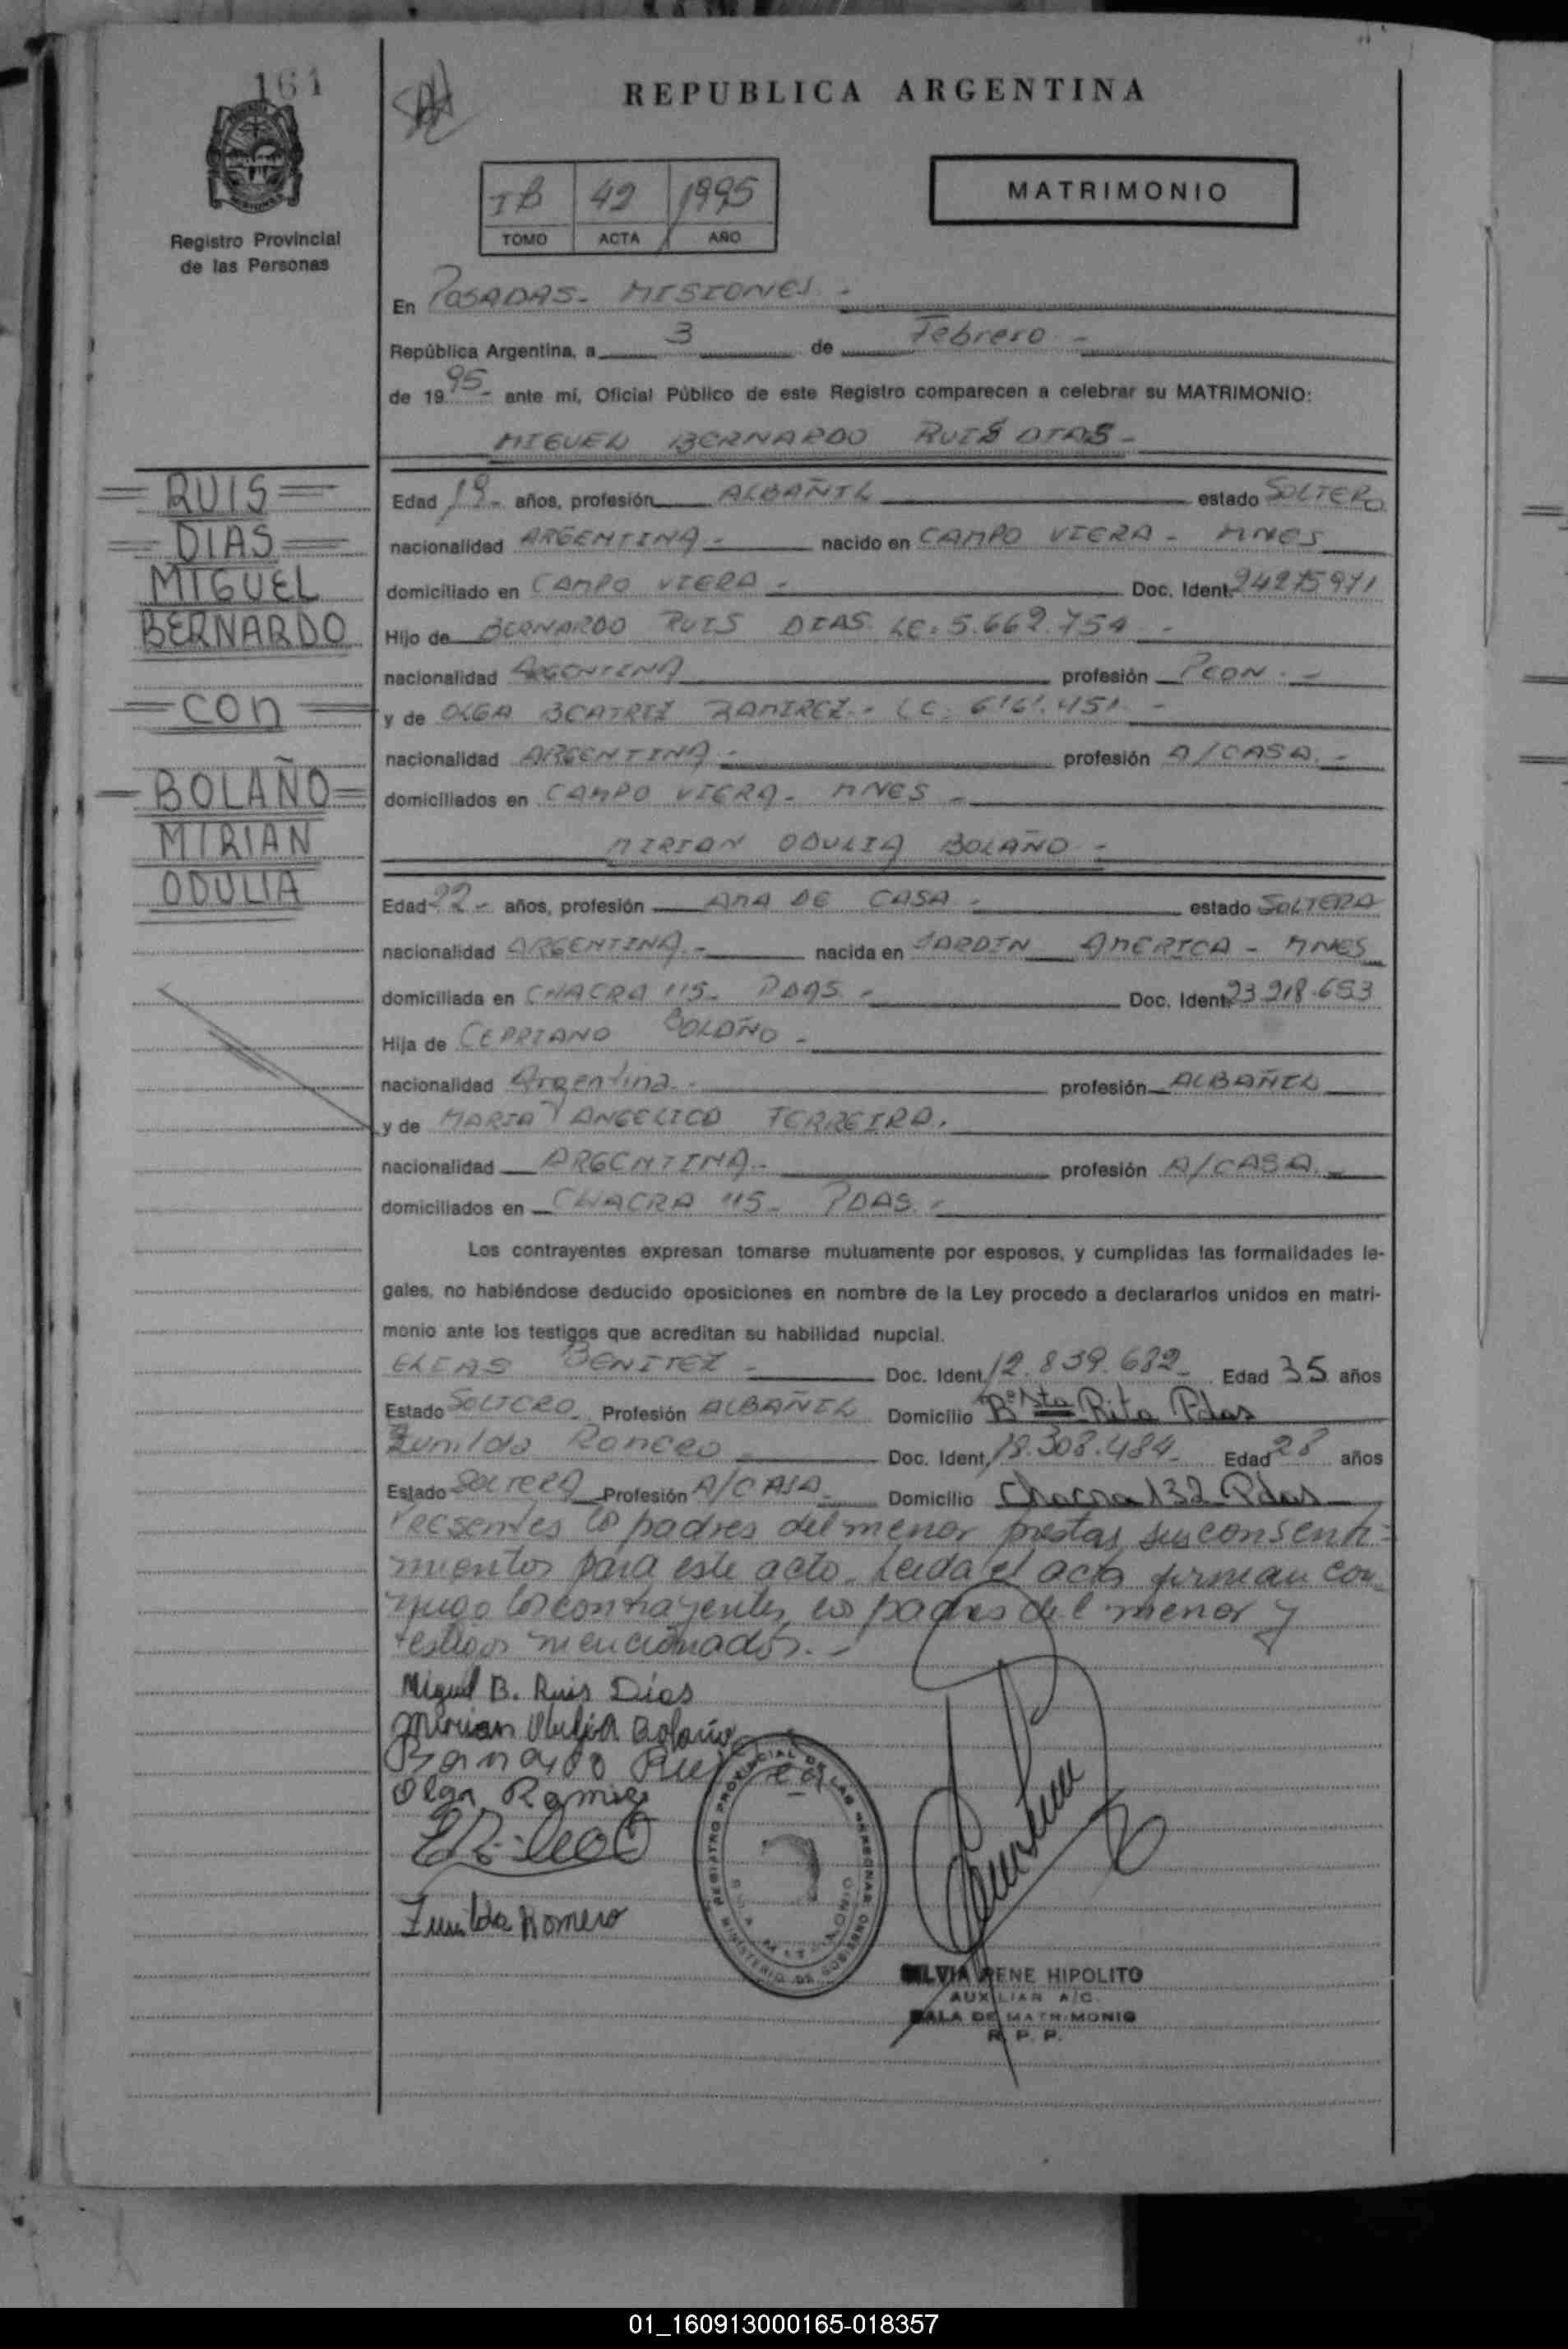 161
REPUBLICA ARGENTINA
IB 42 1995
TOMO ACTA AÑO
MATRIMONIO
Registro Provincial
de las Personas
En POSADAS - MISIONES -
República Argentina, a 3 de Febrero -
de 19 95 - ante mí, Oficial Público de este Registro comparecen a celebrar su MATRIMONIO:
MIGUEL BERNARDO RUIS DIAS -
RUIS
DIAS
MIGUEL
BERNARDO
CON
BOLAÑO
MIRIAN
ODULIA
Edad 19 - años, profesión ALBAÑIL estado SOLTERO
nacionalidad ARGENTINA - nacido en CAMPO VIERA - MNES
domiciliado en CAMPO VIERA - Doc. Ident. 24275971
Hijo de BERNARDO RUIS DIAS LE: 5.662.754 -
nacionalidad ARGENTINA profesión PEON -
y de OLGA BEATRIZ RAMIREZ - LC: 6161.451 -
nacionalidad ARGENTINA - profesión A/CASA. -
domiciliados en CAMPO VIERA - MNES -
MIRIAN ODULIA BOLAÑO -
Edad 22 - años, profesión AMA DE CASA - estado SOLTERA
nacionalidad ARGENTINA - nacida en JARDIN AMERICA - MNES
domiciliada en CHACRA 115 - PDAS - Doc. Ident. 23.918.653
Hija de CEPRIANO BOLAÑO -
nacionalidad Argentina - profesión ALBAÑIL
y de MARIA ANGELICA FERREIRA.
nacionalidad ARGENTINA - profesión A/CASA. -
domiciliados en CHACRA 115 - PDAS. -
Los contrayentes expresan tomarse mutuamente por esposos, y cumplidas las formalidades le-
gales, no habiéndose deducido oposiciones en nombre de la Ley procedo a declararlos unidos en matri-
monio ante los testigos que acreditan su habilidad nupcial.
ELIAS BENITEZ - Doc. Ident. 12.839.682 - Edad 35 años
Estado SOLTERO Profesión ALBAÑIL Domicilio B° Sta Rita Pdas
Zunilda Romero - Doc. Ident. 18.308.484 - Edad 28 años
Estado SOLTERA Profesión A/CASA Domicilio Chacra 132 Pdas
Presentes los padres del menor prestas sus consenti-
mientos para este acto. Leida el acta firman con-
migo los contrayentes, los padres del menor y
testigos mencionados. -
Miguel B. Ruis Dias
Mirian Odulia Bolaño
Olga Ramirez
Zunilda Romero
REGISTRO PROVINCIAL DE LAS PERSONAS
MINISTERIO DE GOBIERNO
SILVIA IRENE HIPOLITO
AUXILIAR A/C.
SALA DE MATRIMONIO
R. P. P.
01_160913000165-018357